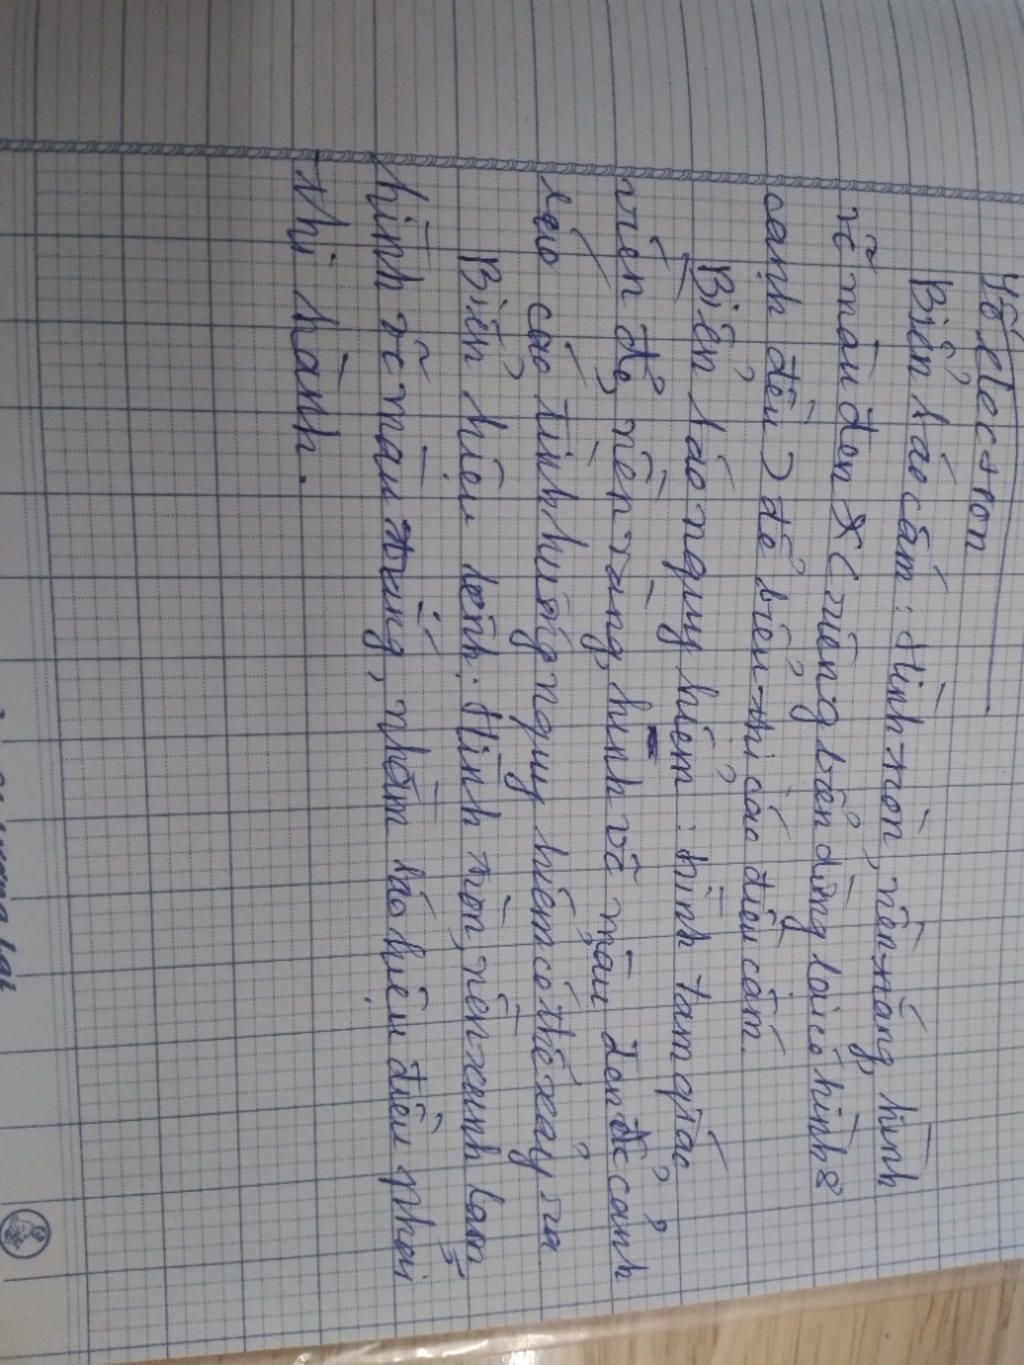 Biển báo cấm: Hình tròn, nền trắng, hình
vẽ màu đen ( riêng biển dừng lại có hình 8
cạnh đều ) để biểu thị các điều cấm.
Biển báo nguy hiểm: hình tam giác
viền đỏ, nền vàng, hình vẽ màu đen để cảnh
báo các tình huống nguy hiểm có thể xảy ra
Biển hiệu lệnh: Hình tròn, nền xanh lam
hình vẽ màu trắng, nhằm báo hiệu điều phải
thi hành.